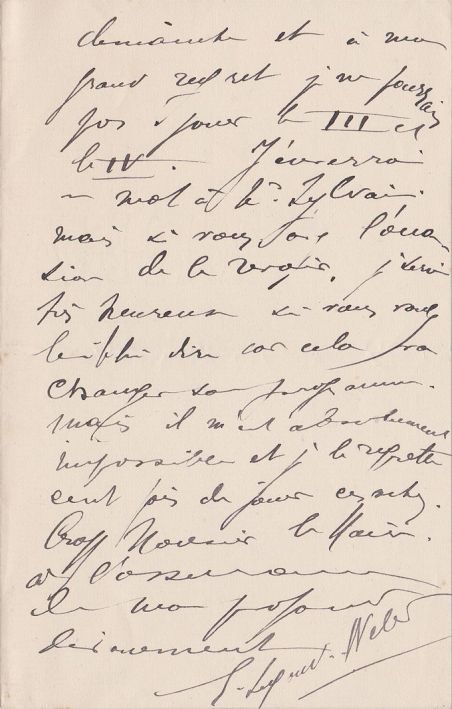 demande et à mon
grand regret je ne pourrais
pas jouer le III et
le IV. J'enverrai
un mot à Mr Sylvain,
mais si vous avez l'occa-
sion de le revoir, je serai
très heureuse si vous vouliez
le lui dire car cela va
changer son programme.
mais il m'est absolument
impossible et je le regrette
cent fois de jouer ces actes.
Croyez Monsieur le Maire.
à l'assurance
de mon profond
dévouement